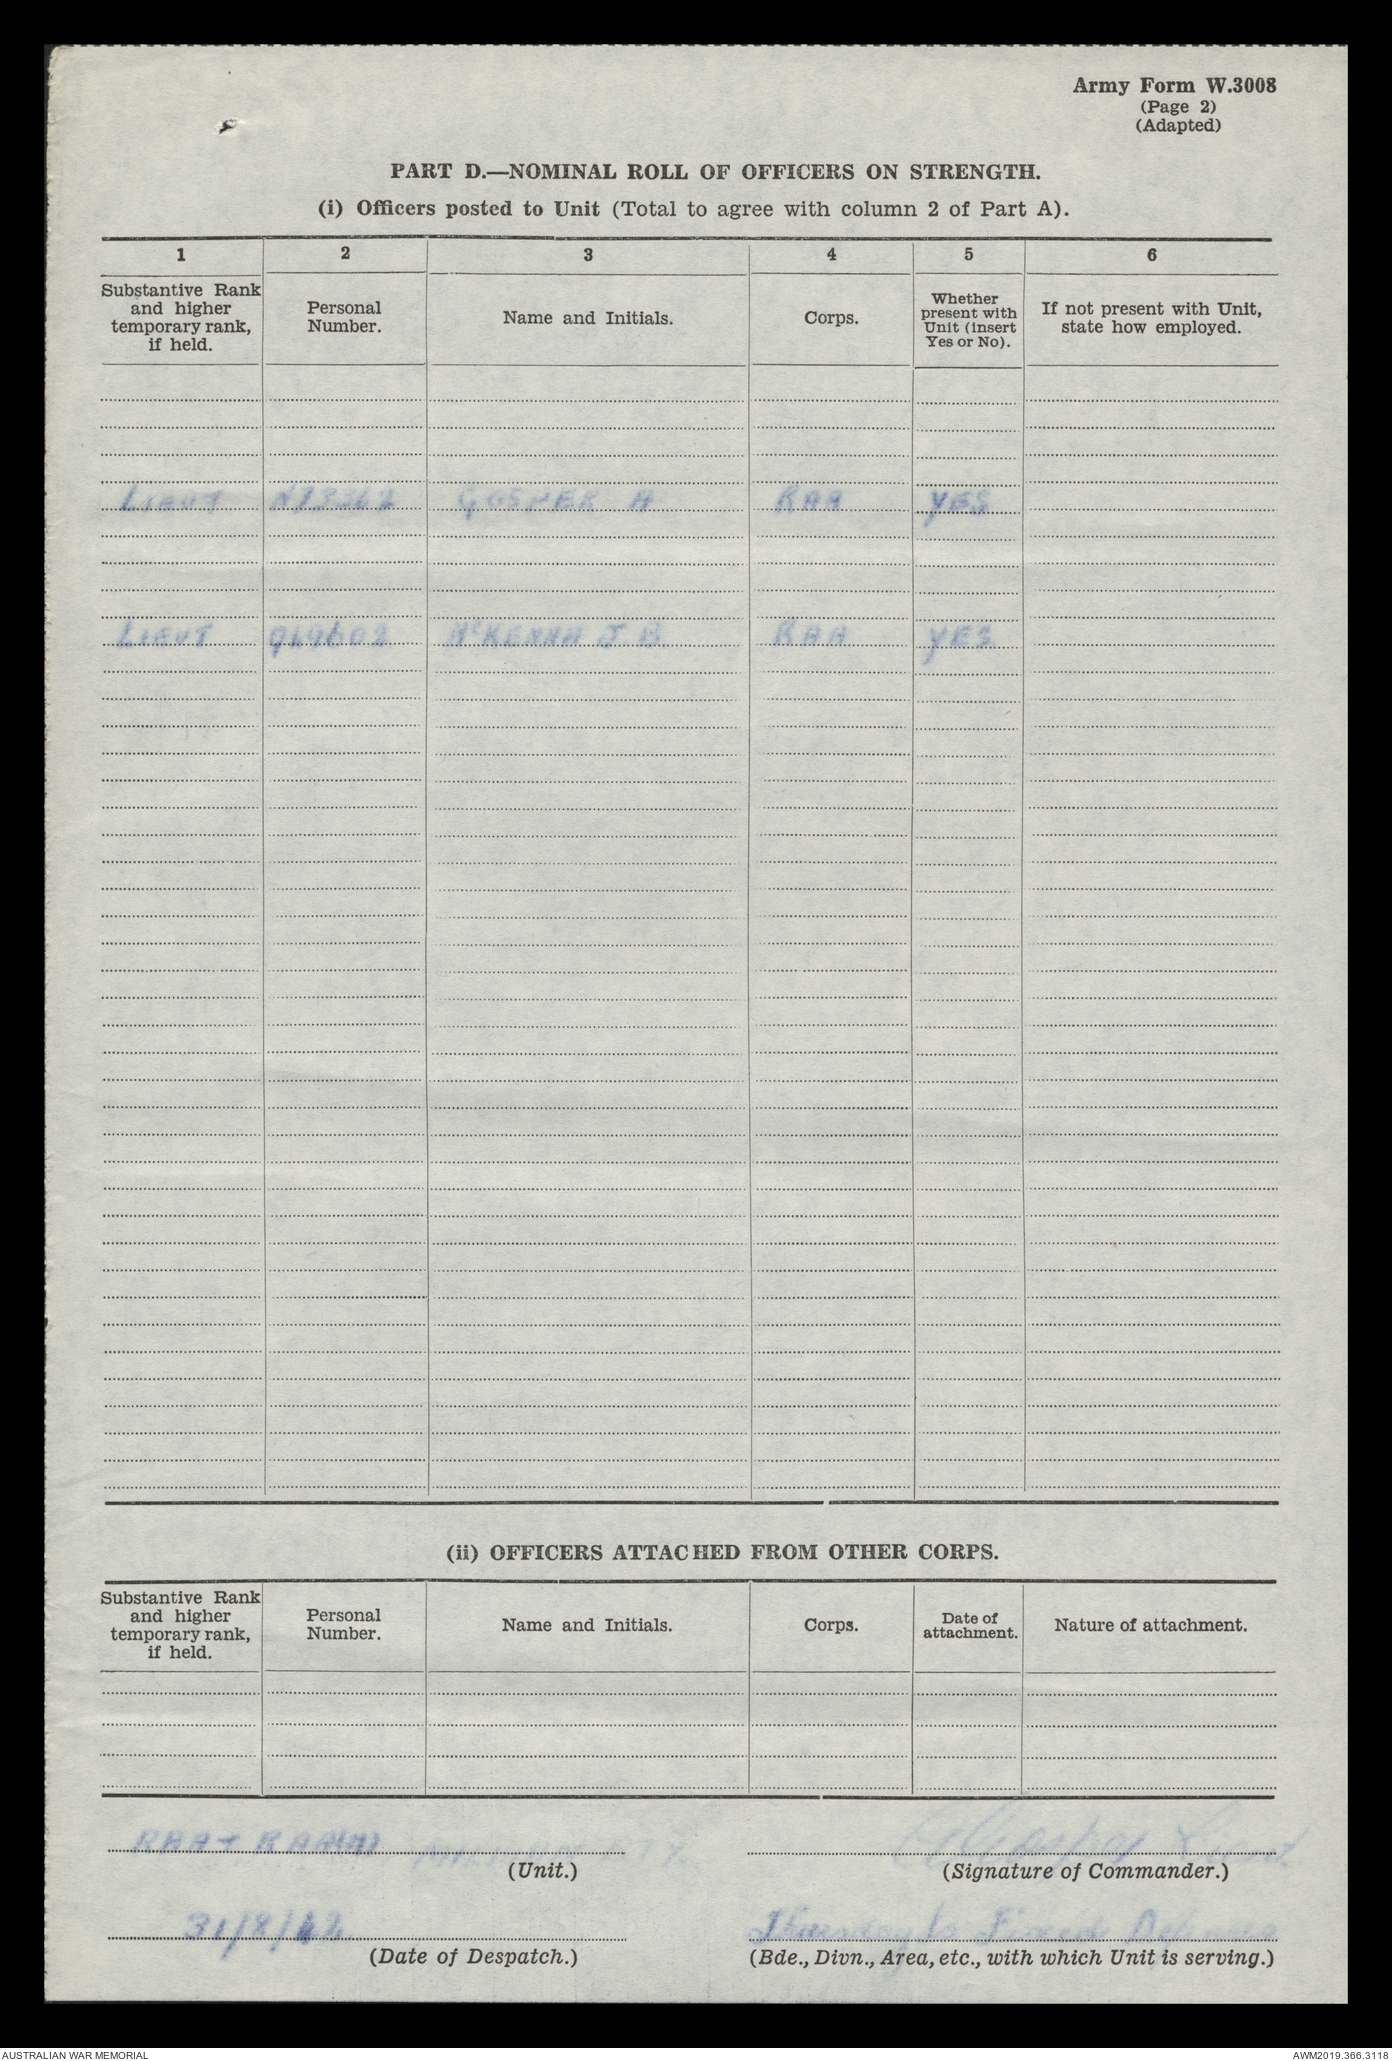 Army Form W.3008
(Page 2)
(Adapted)
PART D.—NOMINAL ROLL OF OFFICERS ON STRENGTH.
(i) Officers posted to Unit (Total to agree with column 2 of Part A).
1 2 3 4 5 6
Substantive Rank and higher temporary rank, if held. Personal Number. Name and Initials. Corps. Whether present with Unit (insert Yes or No). If not present with Unit, state how employed.
LIEUT GOSPER A RAA YES
LIEUT McKENNA J.B. RAA YES
(ii) OFFICERS ATTACHED FROM OTHER CORPS.
Substantive Rank and higher temporary rank, if held. Personal Number. Name and Initials. Corps. Date of attachment. Nature of attachment.
RAA & RAA(M) MILMAN BTY. Lieut
(Unit.) (Signature of Commander.)
31/8/42 Thursday Is Fixed Defences
(Date of Despatch.) (Bde., Divn., Area, etc., with which Unit is serving.)
AUSTRALIAN WAR MEMORIAL AWM2019.366.3118